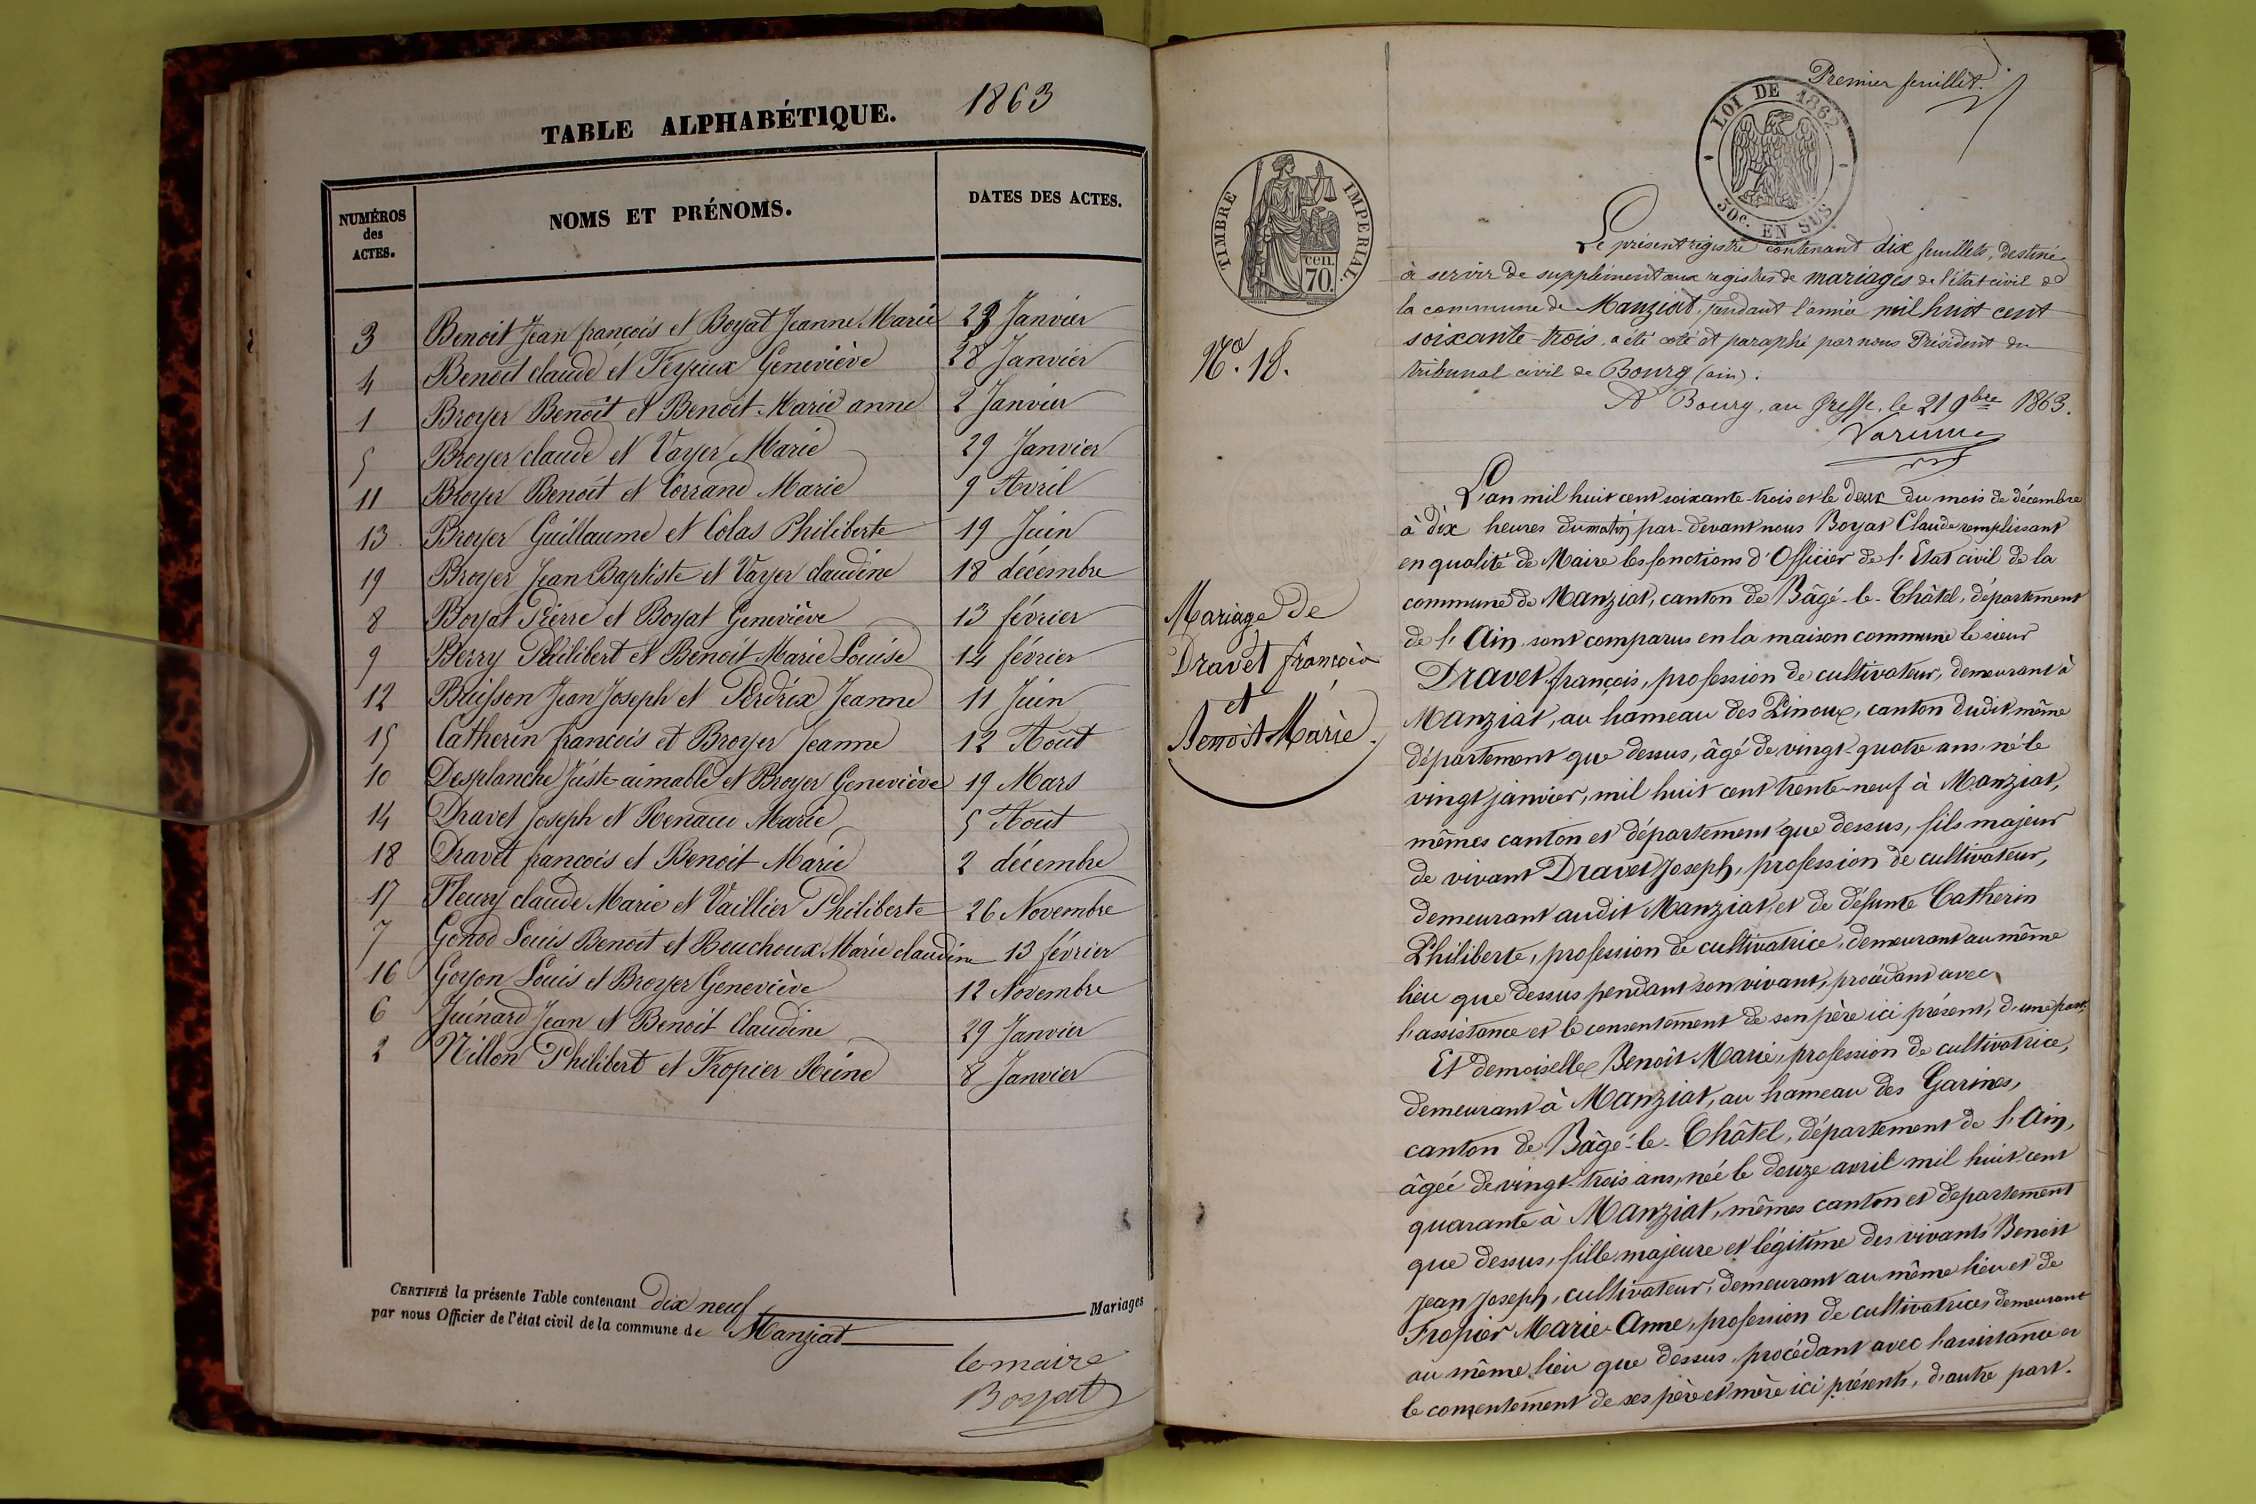 TABLE ALPHABÉTIQUE. 1863
NUMÉROS des ACTES. NOMS ET PRÉNOMS. DATES DES ACTES.
3 Benoit Jean françois et Boyat Jeanne Marie 28 Janvier
4 Benoit claude et Feyeux Geneviève 28 Janvier
1 Broyer Benoît et Benoit Marie anne 2 Janvier
5 Broyer claude et Voyer Marie 29 Janvier
11 Broyer Benoît et Corrand Marie 9 Avril
13 Broyer Guillaume et Colas Philiberte 19 Juin
19 Broyer Jean Baptiste et Voyer claudine 18 décembre
8 Boyat Pierre et Boyat Geneviève 13 février
9 Berry Philibert et Benoit Marie Louise 14 février
12 Buisson Jean Joseph et Perdrix Jeanne 11 Juin
15 Catherin françois et Broyer Jeanne 12 Août
10 Desplanche Juste-aimable et Broyer Geneviève 19 Mars
14 Dravet Joseph et Renaud Marie 5 Août
18 Dravet françois et Benoit Marie 2 décembre
17 Fleury claude Marie et Vaillier Philiberte 26 Novembre
7 Genod Louis Benoit et Bouchoux Marie claudine 13 février
16 Goyon Louis et Broyer Geneviève 12 Novembre
6 Juénard Jean et Benoit Claudine 29 Janvier
2 Nillon Philibert et Tropier Reine 8 Janvier
CERTIFIÉ la présente Table contenant dix neuf Mariages
par nous Officier de l'état civil de la commune de Manziat
le maire
Boyat
Premier feuillet.
LOI DE 1862
50c. EN SUS
TIMBRE IMPERIAL.
cen. 70.
No. 18.
Le présent registre contenant dix feuillets, destiné
à servir de supplément aux registres de mariages de l'état civil de
la commune de Manziat, pendant l'année mil huit cent
soixante-trois, a été coté et paraphé par nous Président du
tribunal civil de Bourg (ain).
A Bourg, au Greffe, le 21 9bre 1863.
Mariage de
Dravet françois
et
Benoit Marie.
L'an mil huit cent soixante-trois et le deux du mois de décembre
à dix heures du matin, par-devant nous Boyat Claude remplissant
en qualité de Maire les fonctions d'Officier de l'Etat civil de la
commune de Manziat, canton de Bâgé-le-Châtel, département
de l'Ain, sont comparus en la maison commune le sieur
Dravet françois, profession de cultivateur, demeurant à
Manziat, au hameau des Pinoux, canton dudit même
département que dessus, âgé de vingt-quatre ans, né le
vingt janvier, mil huit cent trente-neuf à Manziat,
mêmes canton et département que dessus, fils majeur
de vivant Dravet Joseph, profession de cultivateur,
demeurant audit Manziat, et de défunte Catherin
Philiberte, profession de cultivatrice, demeurant au même
lieu que dessus pendant son vivant, procédant avec
l'assistance et le consentement de son père ici présent, d'une part,
Et demoiselle Benoit Marie, profession de cultivatrice,
demeurant à Manziat, au hameau des Garines,
canton de Bâgé-le-Châtel, département de l'Ain,
âgée de vingt-trois ans, née le douze avril mil huit cent
quarante à Manziat, mêmes canton et département
que dessus, fille majeure et légitime des vivants Benoit
Jean Joseph, cultivateur, demeurant au même lieu et de
Tropier Marie-Anne, profession de cultivatrice, demeurant
au même lieu que dessus procédant avec l'assistance et
le consentement de ses père et mère ici présents, d'autre part.